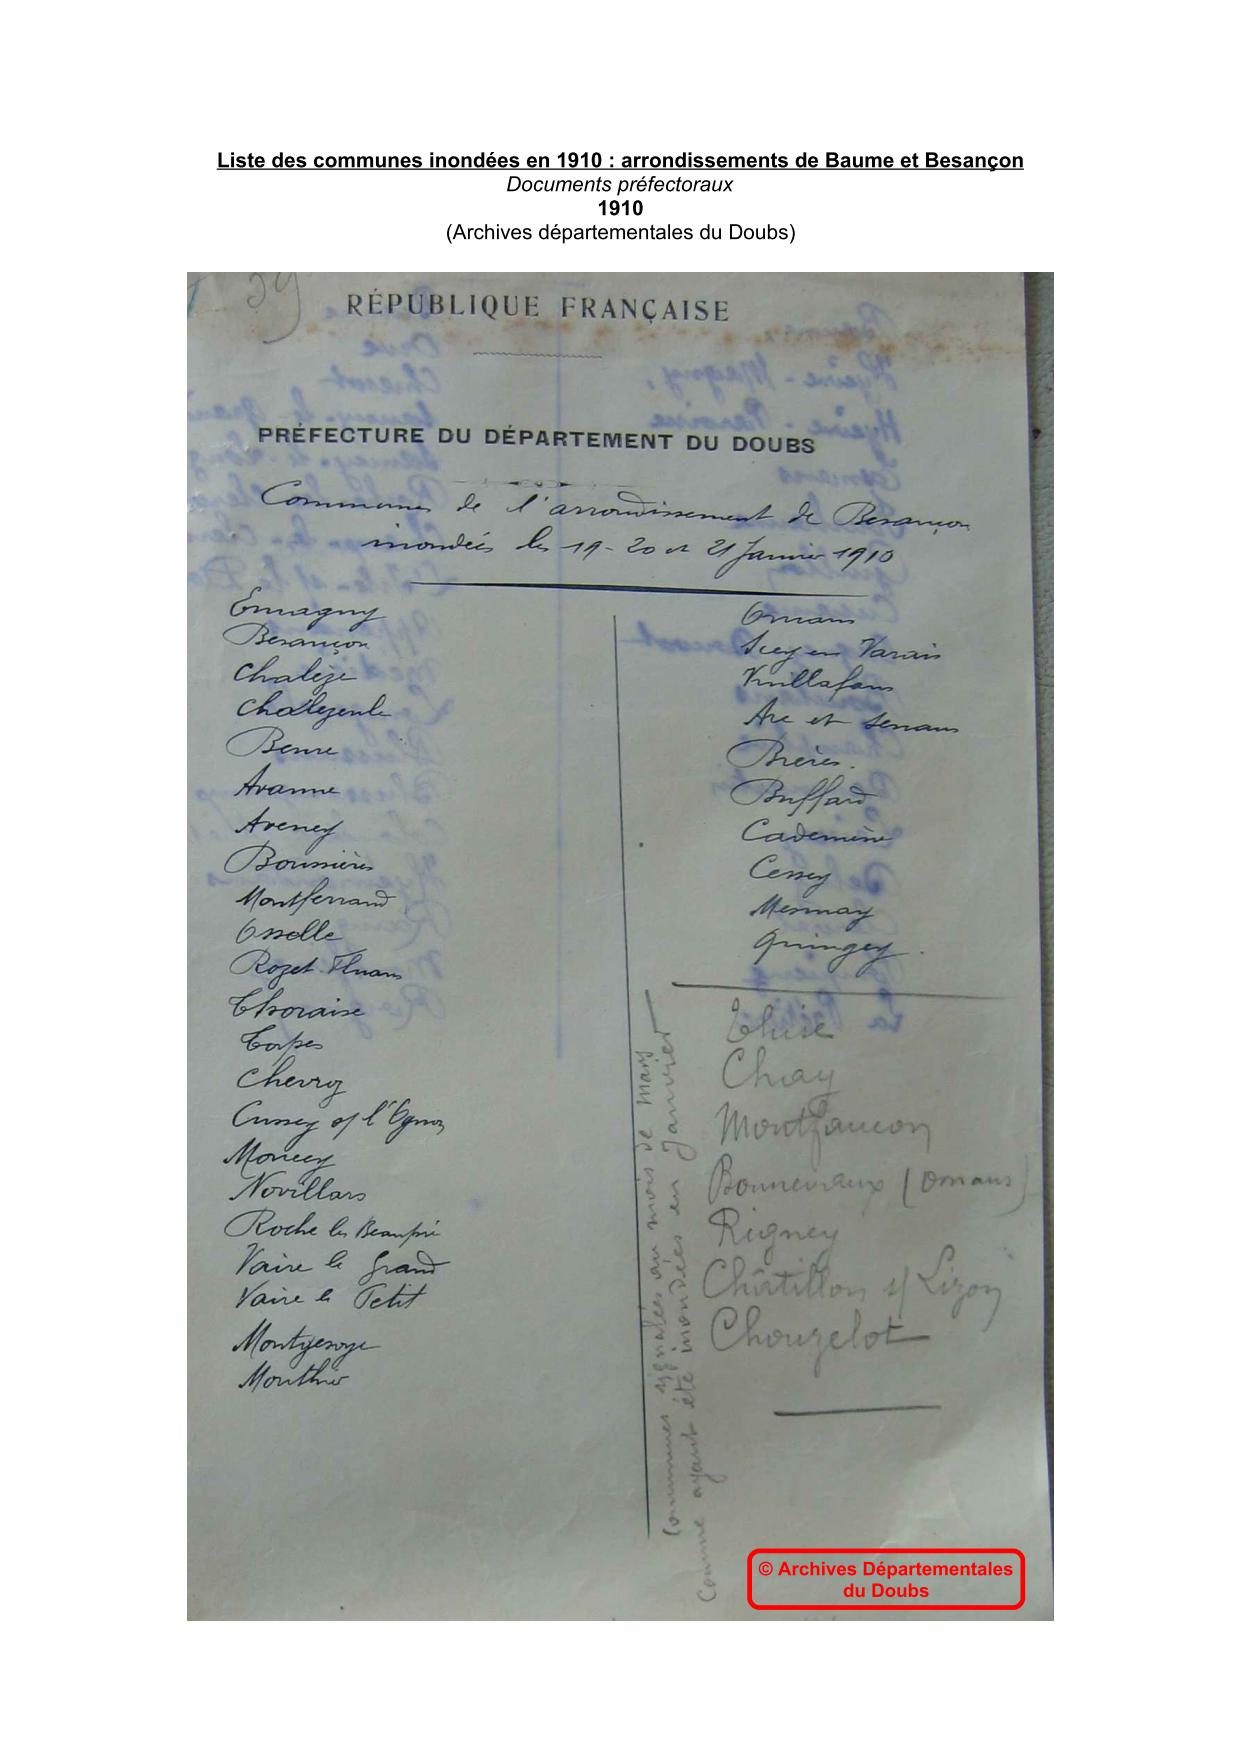 Liste des communes inondées en 1910 : arrondissements de Baume et Besançon
Documents préfectoraux
1910
(Archives départementales du Doubs)
39
RÉPUBLIQUE FRANÇAISE
PRÉFECTURE DU DÉPARTEMENT DU DOUBS
Communes de l'arrondissement de Besançon
inondées les 19-20 et 21 Janvier 1910
Emagny
Besançon
Chalèze
Chalezeule
Beure
Avanne
Aveney
Boussières
Montferrand
Osselle
Rozet-Fluans
Thoraise
Torpes
Chevroz
Cussey s/ l'Ognon
Moncey
Novillars
Roche les Beaupré
Vaire le Grand
Vaire le Petit
Montgesoye
Mouthier
Ornans
Scey en Varais
Vuillafans
Arc et Senans
Brères.
Buffard
Cademène
Cessey
Mesmay
Quingey.
Communes signalées au mois de mars
comme ayant été inondées en Janvier
Thise
Chay
Montfaucon
Bonnevaux (Ornans)
Rigney
Châtillon s/ Lizon
Chouzelot
© Archives Départementales
du Doubs